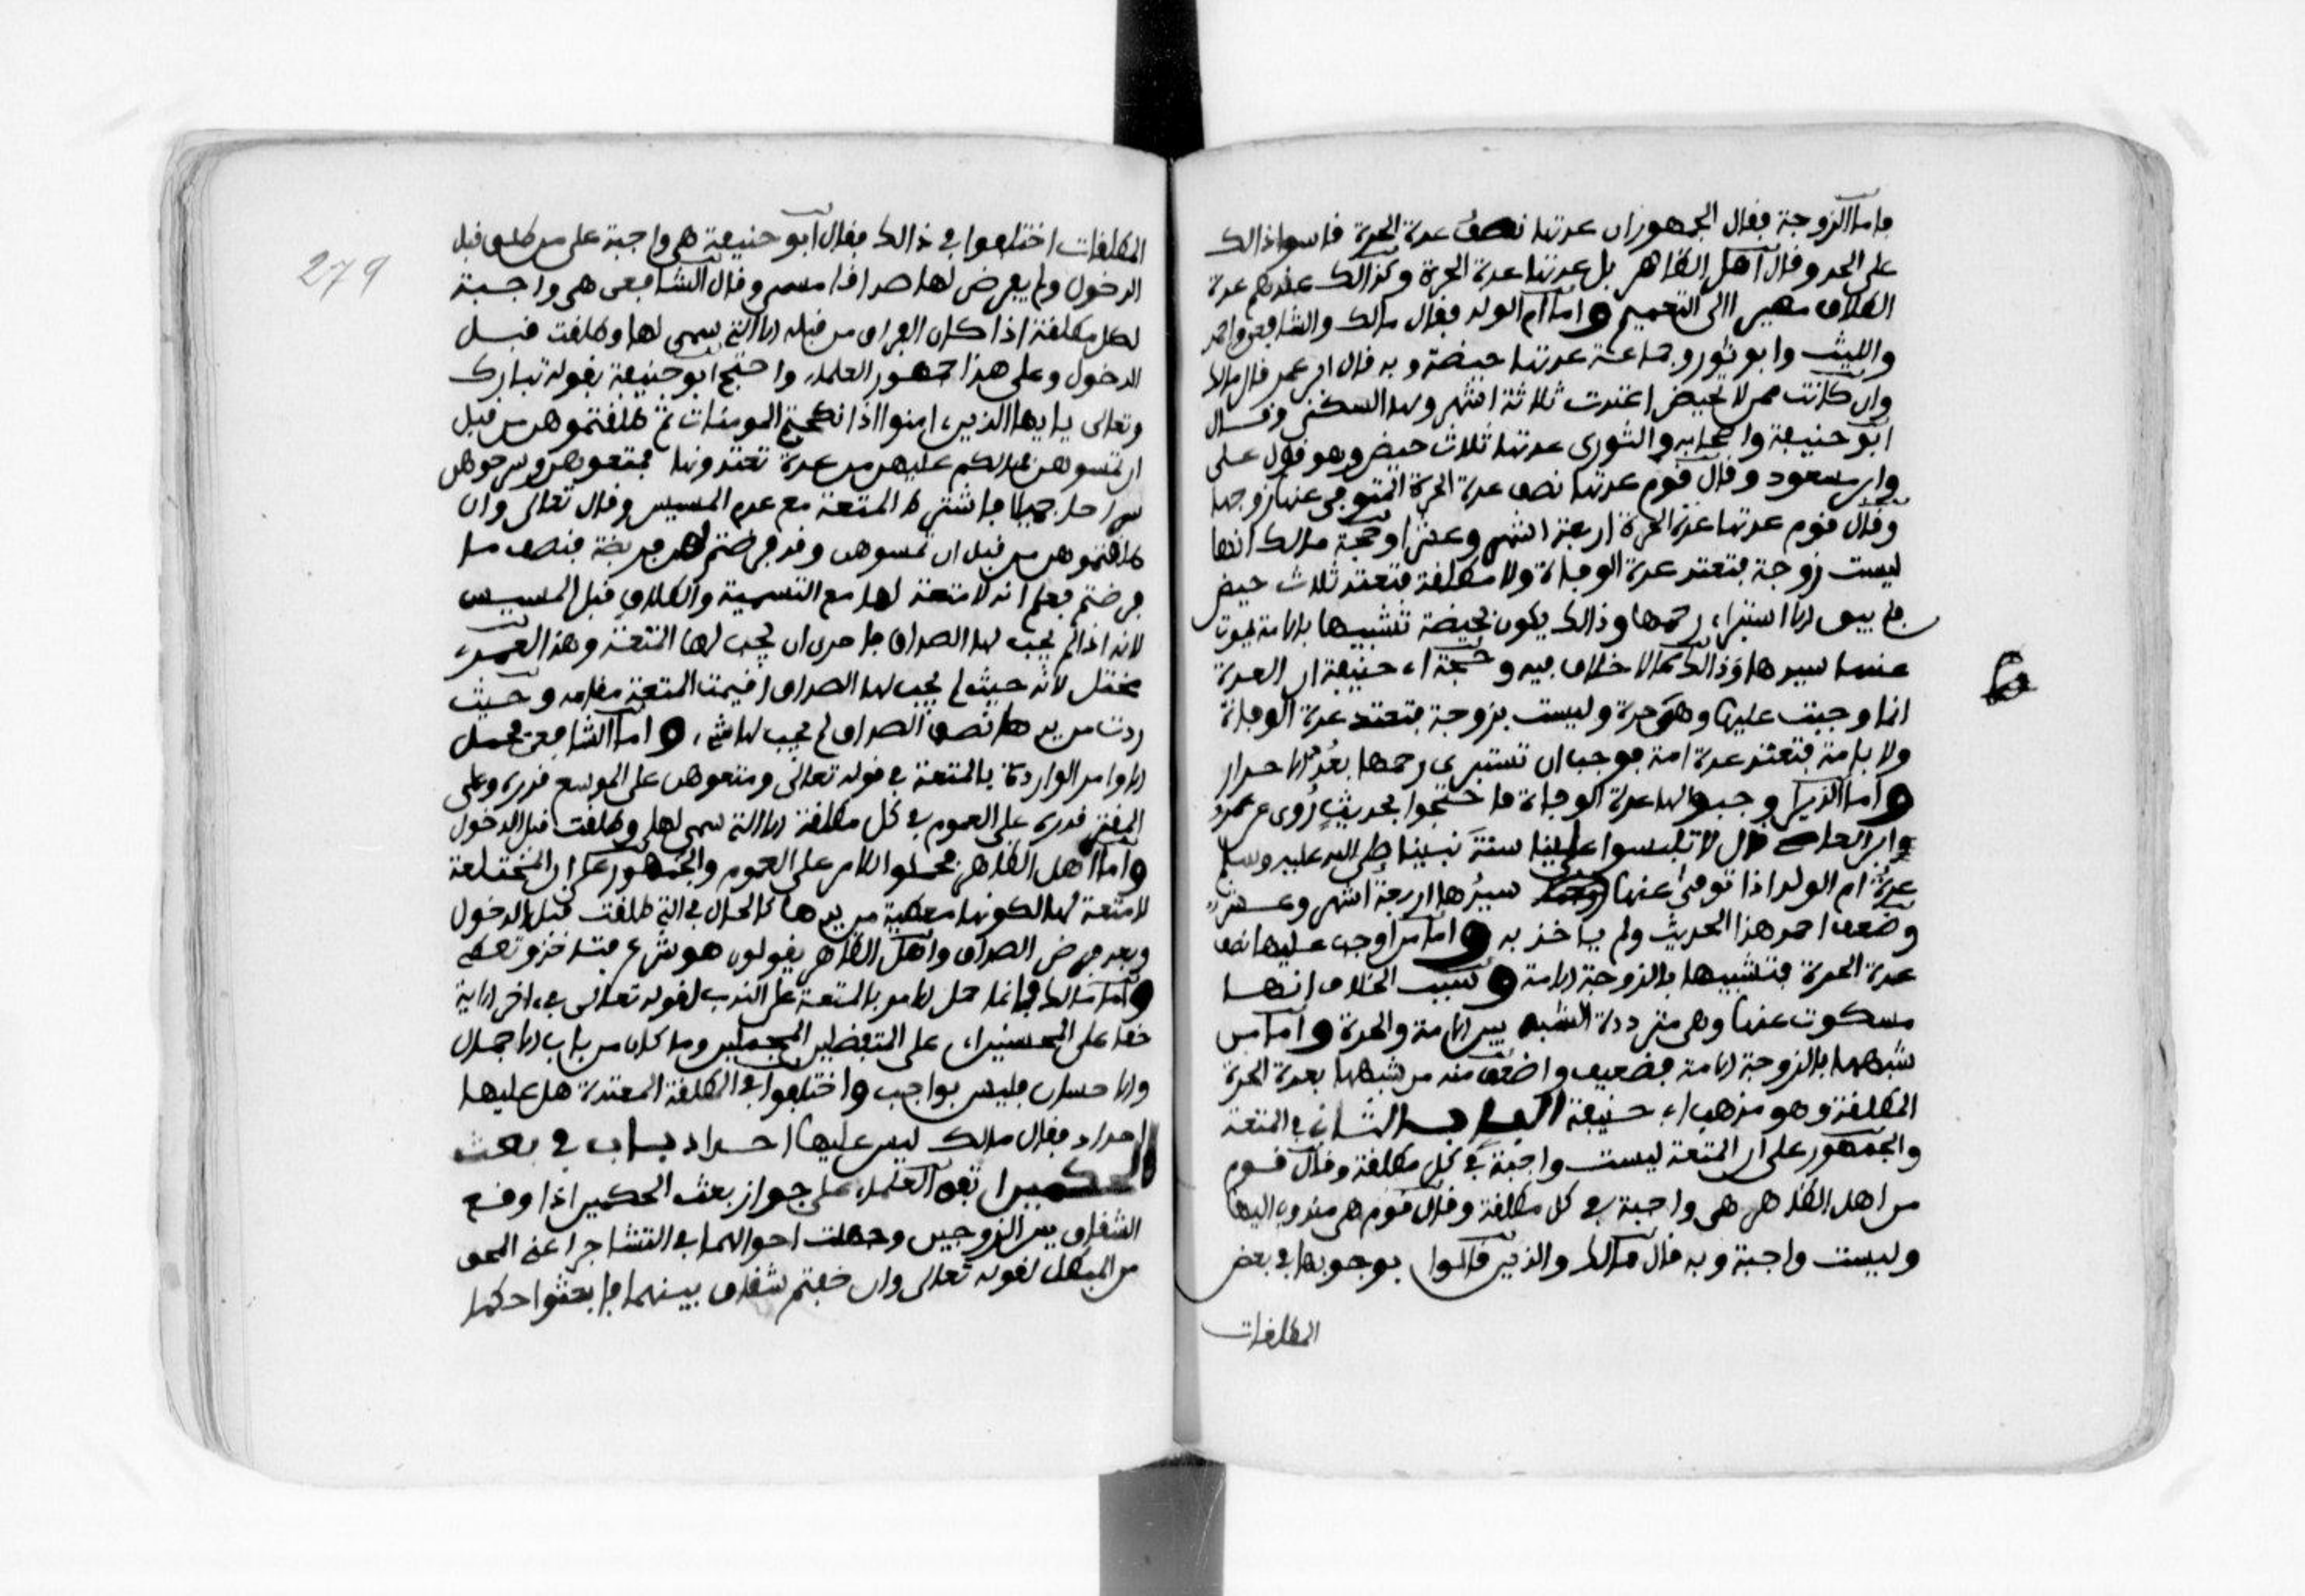 فاما الزوجة فقال الجمهور ان عدتها نصف عدة الحرة قاسوا ذالك
على الحد وقال اهل الظاهر بل عدتها عدة الحرة وكذالك عندهم عدة
الطلاق مصيرا الى التعميم واما ام الولد فقال مالك والشافعي واحمد
والليث وابو ثور وجماعة عدتها حيضة وبه قال ابن عمر قال مالك
وان كانت ممن لا تحيض اعتدت ثلاثة اشهر ولها السكنى وقال
ابو حنيفة واصحابه والثوري عدتها ثلاث حيض وهو قول على
وابن مسعود وقال قوم عدتها نصف عدة الحرة المتوفى عنها زوجها
وقال قوم عدتها عدة الحرة اربعة اشهر وعشرا وحجة مالك انها
ليست زوجة فتعتد عدة الوفاة ولا مطلقة فتعتد ثلاث حيض
فلم يبق الا استبراء رحمها وذالك يكون بحيضة تشبيها بالامة يموت
عنها سيدها وذالك مما لا خلاف فيه وحجة ابي حنيفة ان العدة
انما وجبت عليها وهي حرة وليست بزوجة فتعتد عدة الوفاة
ولا بامة فتعتد عدة امة فوجب ان تستبرى رحمها بعد الاحرار
واما الذين اوجبوا لها عدة الوفاة فاحتجوا بحديث روى عن عمرو
وابن العاص قال لا تلبسوا علينا سنة نبينا صلى الله عليه وسلم
عدة ام الولد اذا توفى عنها سيدها اربعة اشهر وعشر
وضعف احمد هذا الحديث ولم ياخذ به واما من اوجب عليها نصف
عدة الحرة فتشبيها بالزوجة الامة وسبب الخلاف انها
مسكوت عنها وهي مترددة الشبه بين الامة والحرة واما من
شبهها بالزوجة الامة فضعيف واضعف منه من شبهها بعدة الحرة
المطلقة وهو مذهب ابي حنيفة الباب الثاني في المتعة
والجمهور على ان المتعة ليست واجبة في كل مطلقة وقال قوم
من اهل الظاهر هي واجبة في كل مطلقة وقال قوم هي مندوب اليها
وليست واجبة وبه قال مالك والذين قالوا بوجوبها في بعض
المطلقات
279
المطلقات اختلفوا في ذالك فقال ابو حنيفة هي واجبة على من طلق قبل
الدخول ولم يفرض لها صداقا مسمى وقال الشافعي هي واجبة
لكل مطلقة اذا كان الفراق من قبله الا التي سمى لها وطلقت قبل
الدخول وعلى هذا جمهور العلماء واحتج ابو حنيفة بقوله تبارك
وتعالى يا ايها الذين ءامنوا اذا نكحتم المومنات ثم طلقتموهن من قبل
ان تمسوهن فمالكم عليهن من عدة تعتدونها فمتعوهن وسرحوهن
سراحا جميلا فاشترط المتعة مع عدم المسيس وقال تعالى وان
طلقتموهن من قبل ان تمسوهن وقد فرضتم لهن فريضة فنصف ما
فرضتم فعلم انه لا متعة لها مع التسمية والطلاق قبل المسيس
لانه اذا لم يجب لها الصداق فاحرى ان لا يجب لها المتعة وهذا لعمرى
مخيل لانه حيث لم يجب لها الصداق اقيمت المتعة مقامه وحيث
ردت من يدها نصف الصداق لم يجب لها شيء واما الشافعي فحمل
الاوامر الواردة بالمتعة في قوله تعالى ومتعوهن على الموسع قدره وعلى
المقتر قدره على العموم في كل مطلقة الا التي سمى لها وطلقت قبل الدخول
واما اهل الظاهر فحملوا الامر على العموم والجمهور على ان المختلعة
لا متعة لها لكونها معطية من يدها كالحال في التي طلقت قبل الدخول
وبعد فرض الصداق واهل الظاهر يقولون هو شرع فتاخذ وتعطى
واما مالك فانما حمل الامر بالمتعة على الندب لقوله تعالى في ءاخر الاية
حقا على المحسنين اي على المتفضلين المجملين وما كان من باب الاجمال
والاحسان فليس بواجب واختلفوا في المطلقة المعتدة هل عليها
احداد فقال مالك ليس عليها احداد باب في بعث
الحكمين اتفق العلماء على جواز بعث الحكمين اذا وقع
الشقاق بين الزوجين وجهلت احوالهما في التشاجر اعني المحق
من المبطل لقوله تعالى وان خفتم شقاق بينهما فابعثوا حكما